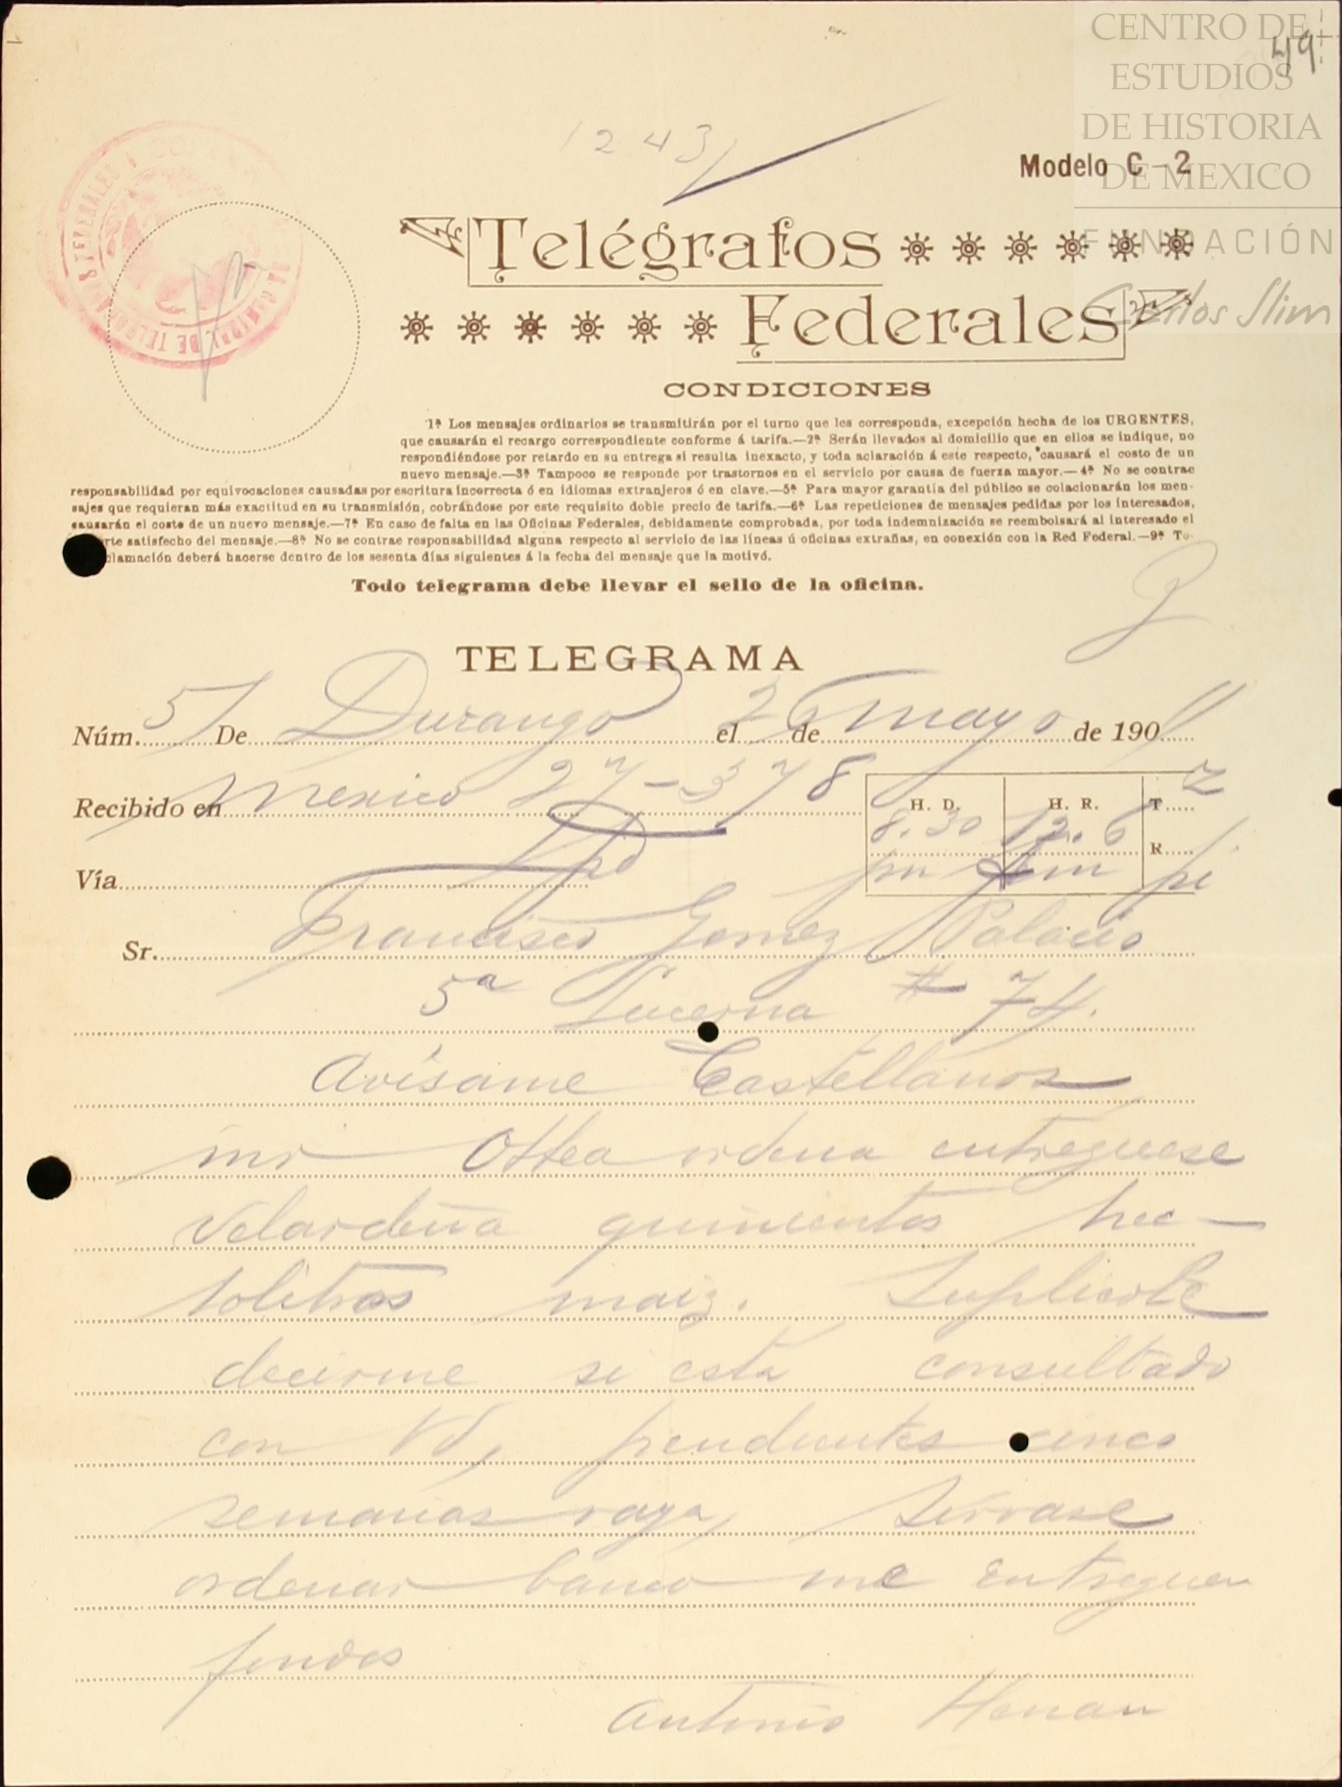 CENTRO DE
ESTUDIOS
DE HISTORIA
DE MEXICO
FUNDACIÓN
Carlos Slim
49
1243
Modelo C-2
Telégrafos
Federales
CONDICIONES
1ª Los mensajes ordinarios se transmitirán por el turno que les corresponda, excepción hecha de los URGENTES,
que causarán el recargo correspondiente conforme á tarifa.—2ª Serán llevados al domicilio que en ellos se indique, no
respondiéndose por retardo en su entrega si resulta inexacto, y toda aclaración á este respecto, causará el costo de un
nuevo mensaje.—3ª Tampoco se responde por trastornos en el servicio por causa de fuerza mayor.—4ª No se contrae
responsabilidad por equivocaciones causadas por escritura incorrecta ó en idiomas extranjeros ó en clave.—5ª Para mayor garantía del público se colacionarán los men-
sajes que requieran más exactitud en su transmisión, cobrándose por este requisito doble precio de tarifa.—6ª Las repeticiones de mensajes pedidas por los interesados,
causarán el costo de un nuevo mensaje.—7ª En caso de falta en las Oficinas Federales, debidamente comprobada, por toda indemnización se reembolsará al interesado el
rte satisfecho del mensaje.—8ª No se contrae responsabilidad alguna respecto al servicio de las líneas ú oficinas extrañas, en conexión con la Red Federal.—9ª To-
clamación deberá hacerse dentro de los sesenta días siguientes á la fecha del mensaje que la motivó.
Todo telegrama debe llevar el sello de la oficina.
TELEGRAMA
Núm. 51 De Durango el 26 de mayo de 1911
Recibido en Mexico 27-378
H. D. H. R. T
8.30 12.6 R
Vía
pm
Sr. Francisco Gomez Palacio
5a Lucerna # 74.
Avísame Castellanos
mr Ottea ordena entreguese
Velardeña quinientos hec-
tolitros maiz. Suplicole
decirme si esta consultado
con Vd, pendientes cinco
semanas raya, sirvase
ordenar banco me entreguen
fondos
Antonio Henan